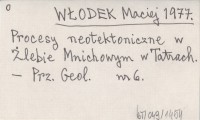 0
WŁODEK Maciej 1977.
Procesy neotektoniczne w
Żlebie Mnichowym w Tatrach.
– Prz. Geol. nr 6.